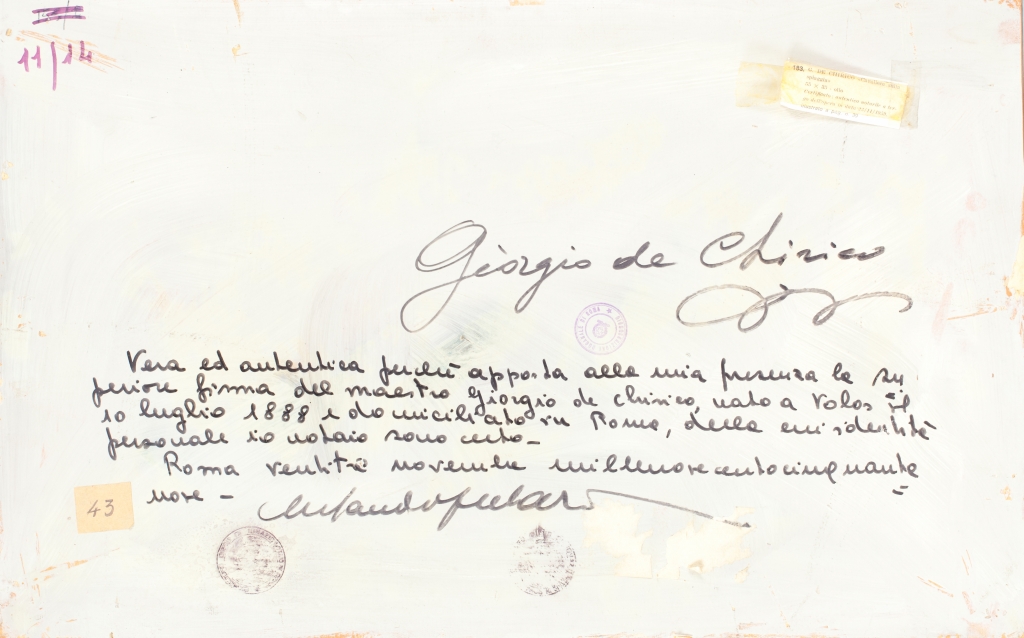 11/14
153. G. DE CHIRICO
Giorgio de Chirico
Vera ed autentica perchè apposta alla mia presenza la su=
periore firma del maestro Giorgio de Chirico, nato a Volos il
10 luglio 1888 e domiciliato in Roma, della cui identità
personale io notaio sono certo_
Roma ventitrè novembre millenovecentocinquanta=
nove_
43